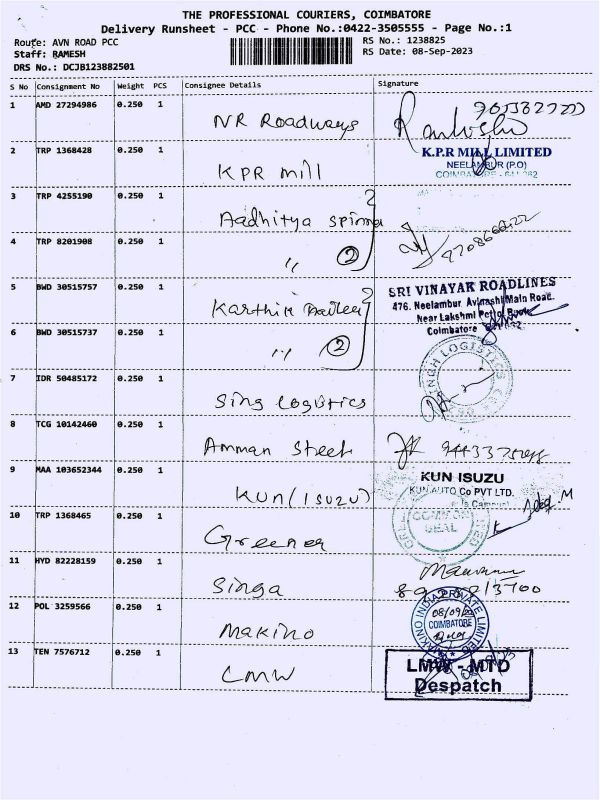 THE PROFESSIONAL COURIERS, COIMBATORE
Delivery Runsheet - PCC - Phone No.:0422-3505555 - Page No.:1
Route: AVN ROAD PCC
RS No.: 1238825
Staff: RAMESH
RS Date: 08-Sep-2023
DRS No.: DCJB123882501
S No Consignment No Weight PCS Consignee Details Signature
1 AMD 27294986 0.250 1 NR Roadways
2 TRP 1368428 0.250 1 KPR mill
K.P.R MILL LIMITED
NEELAMBUR (P.O)
COIMBATORE
3 TRP 4255190 0.250 1 Aadhitya
4 TRP 8201908 0.250 1 " 2
5 BWD 30515757 0.250 1 Karthik
SRI VINAYAK ROADLINES
476. Neelambur Avinashi Main Road.
Near Lakshmi Petrol
Coimbatore
6 BWD 30515737 0.250 1 " 2
7 IDR 50485172 0.250 1 Sing Logistics
SINGH LOGISTICS
8 TCG 10142460 0.250 1 Amman Steel
9 MAA 103652344 0.250 1 KUN (ISUZU)
KUN ISUZU
KUN AUTO Co PVT LTD.
10 TRP 1368465 0.250 1
COMMON
SEAL
11 HYD 82228159 0.250 1 Singa
12 POL 3259566 0.250 1 Makino
MAKINO INDIA PRIVATE LIMITED
08/09/
COIMBATORE
13 TEN 7576712 0.250 1 LMW
LMW - MTD
Despatch